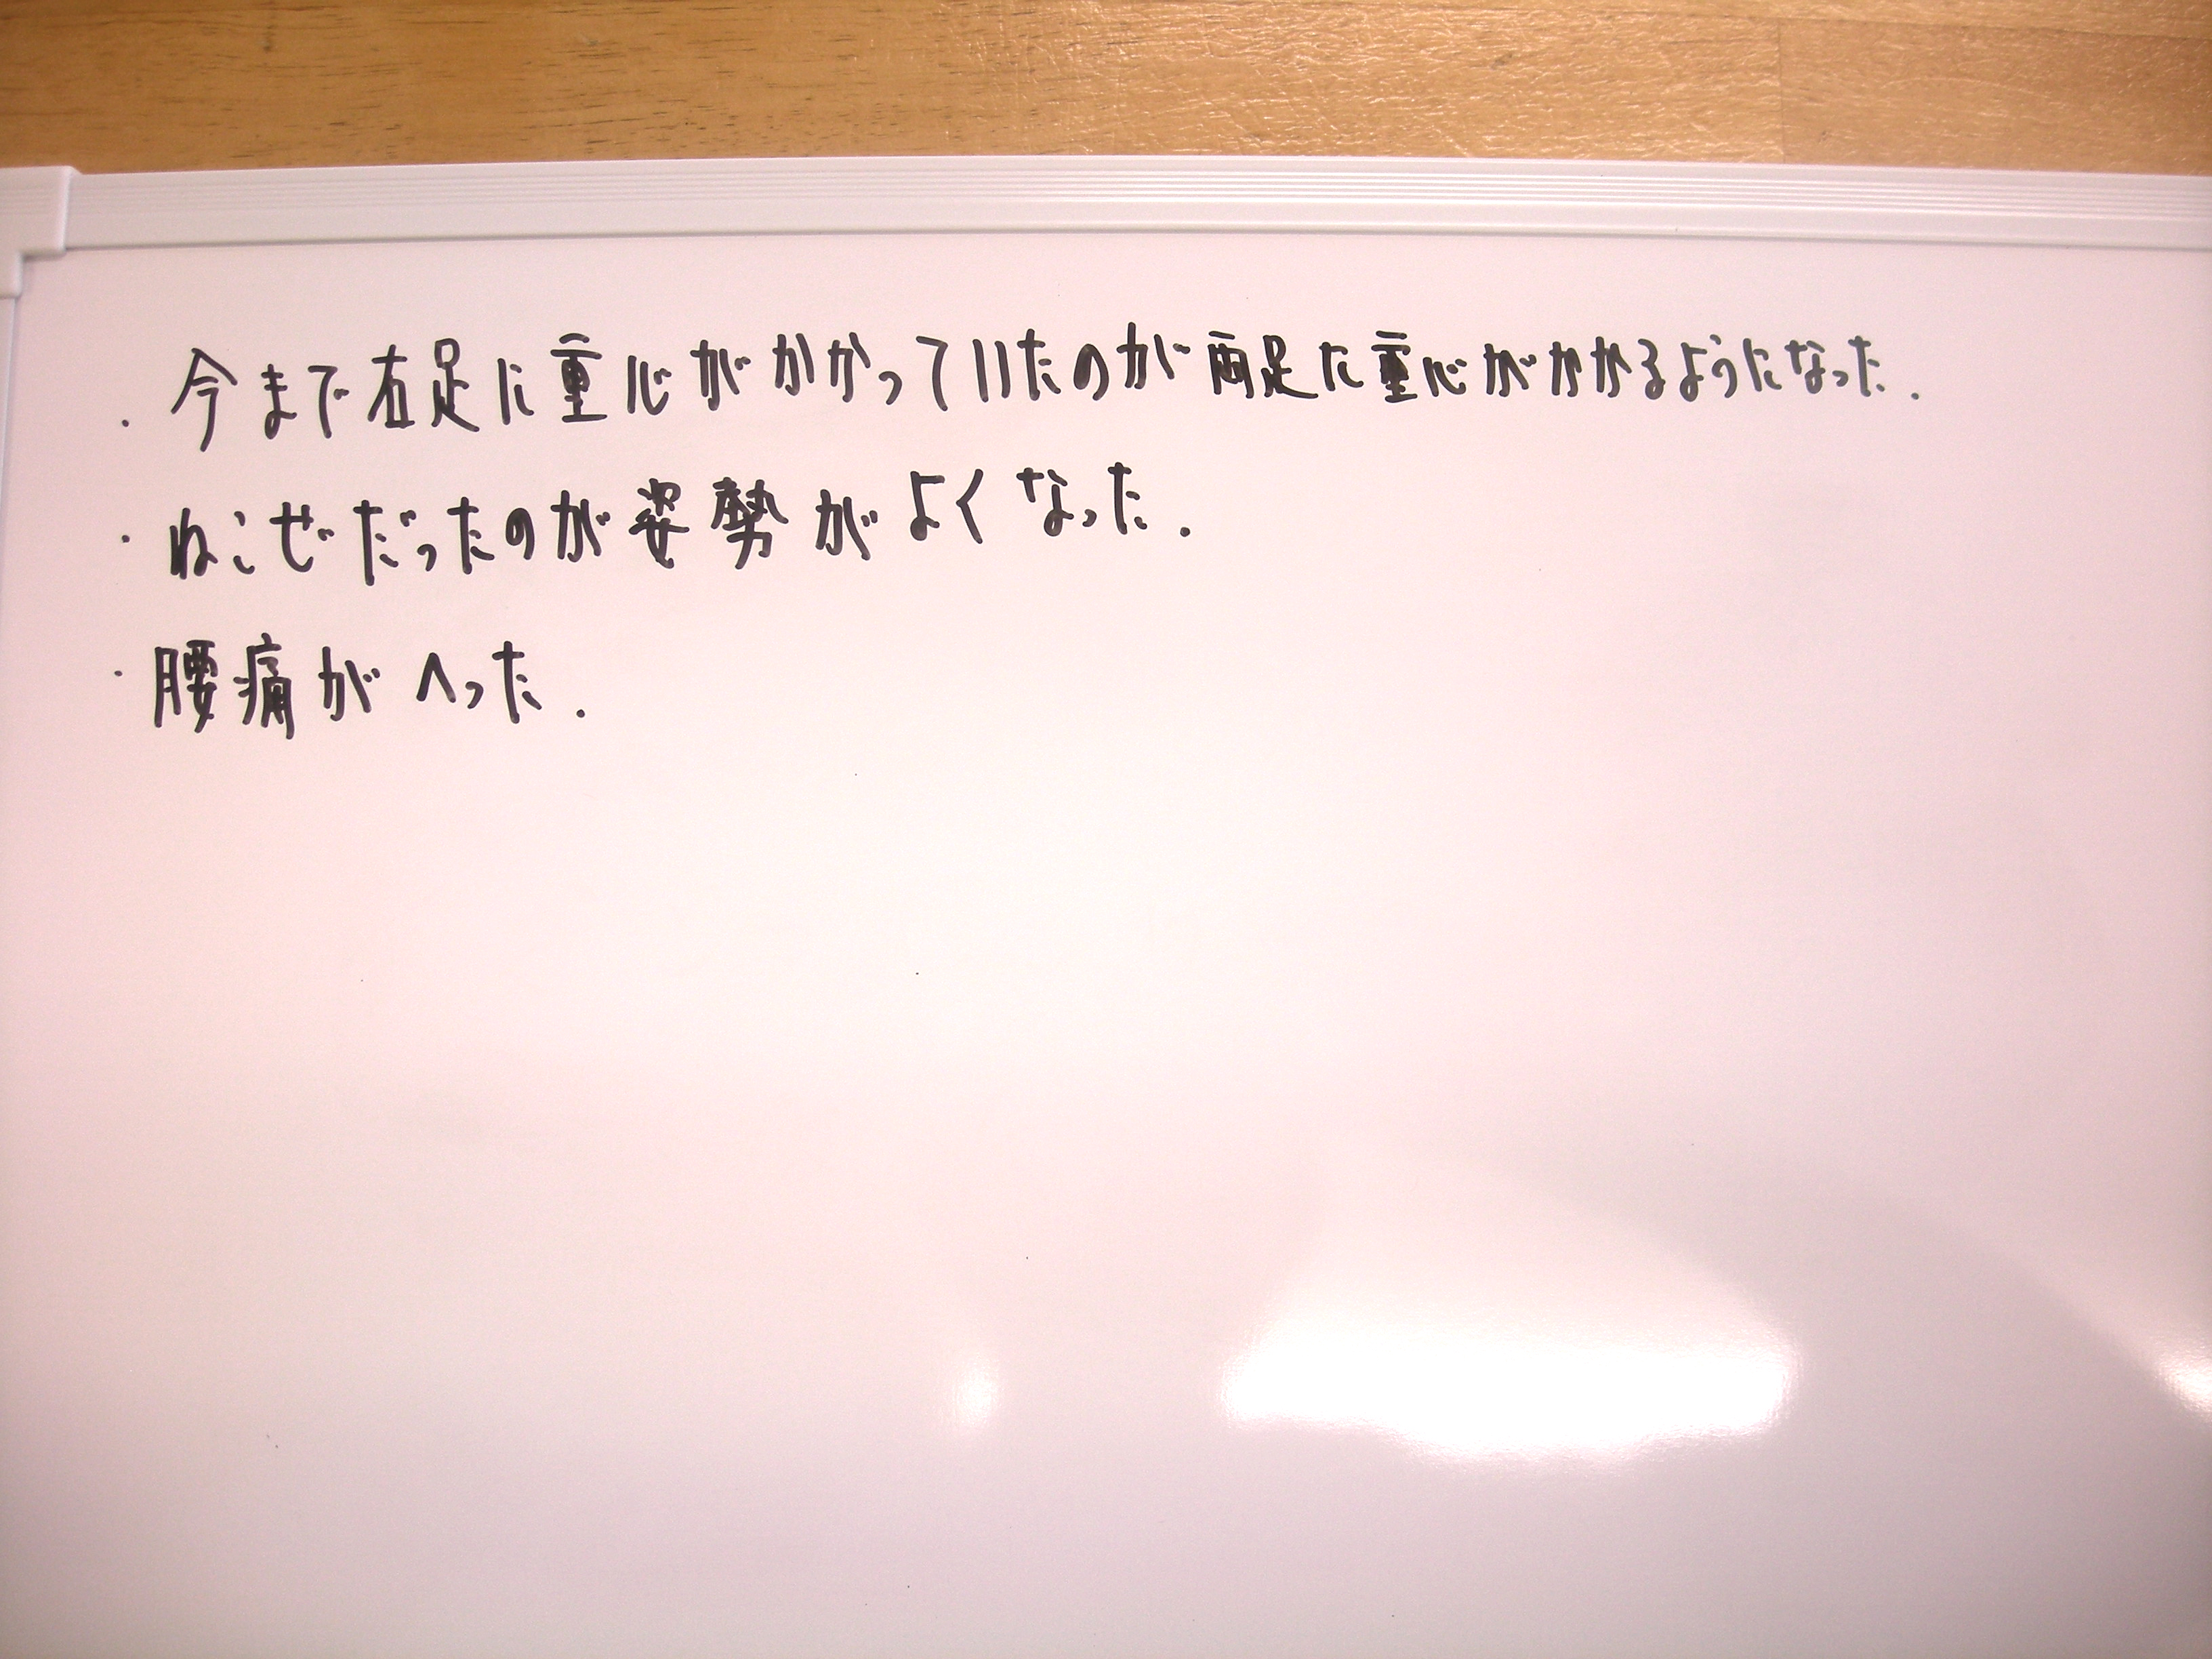 ・今まで右足に重心がかかっていたのが両足に重心がかかるようになった.
・ねこぜだったのが姿勢がよくなった.
・腰痛がへった.